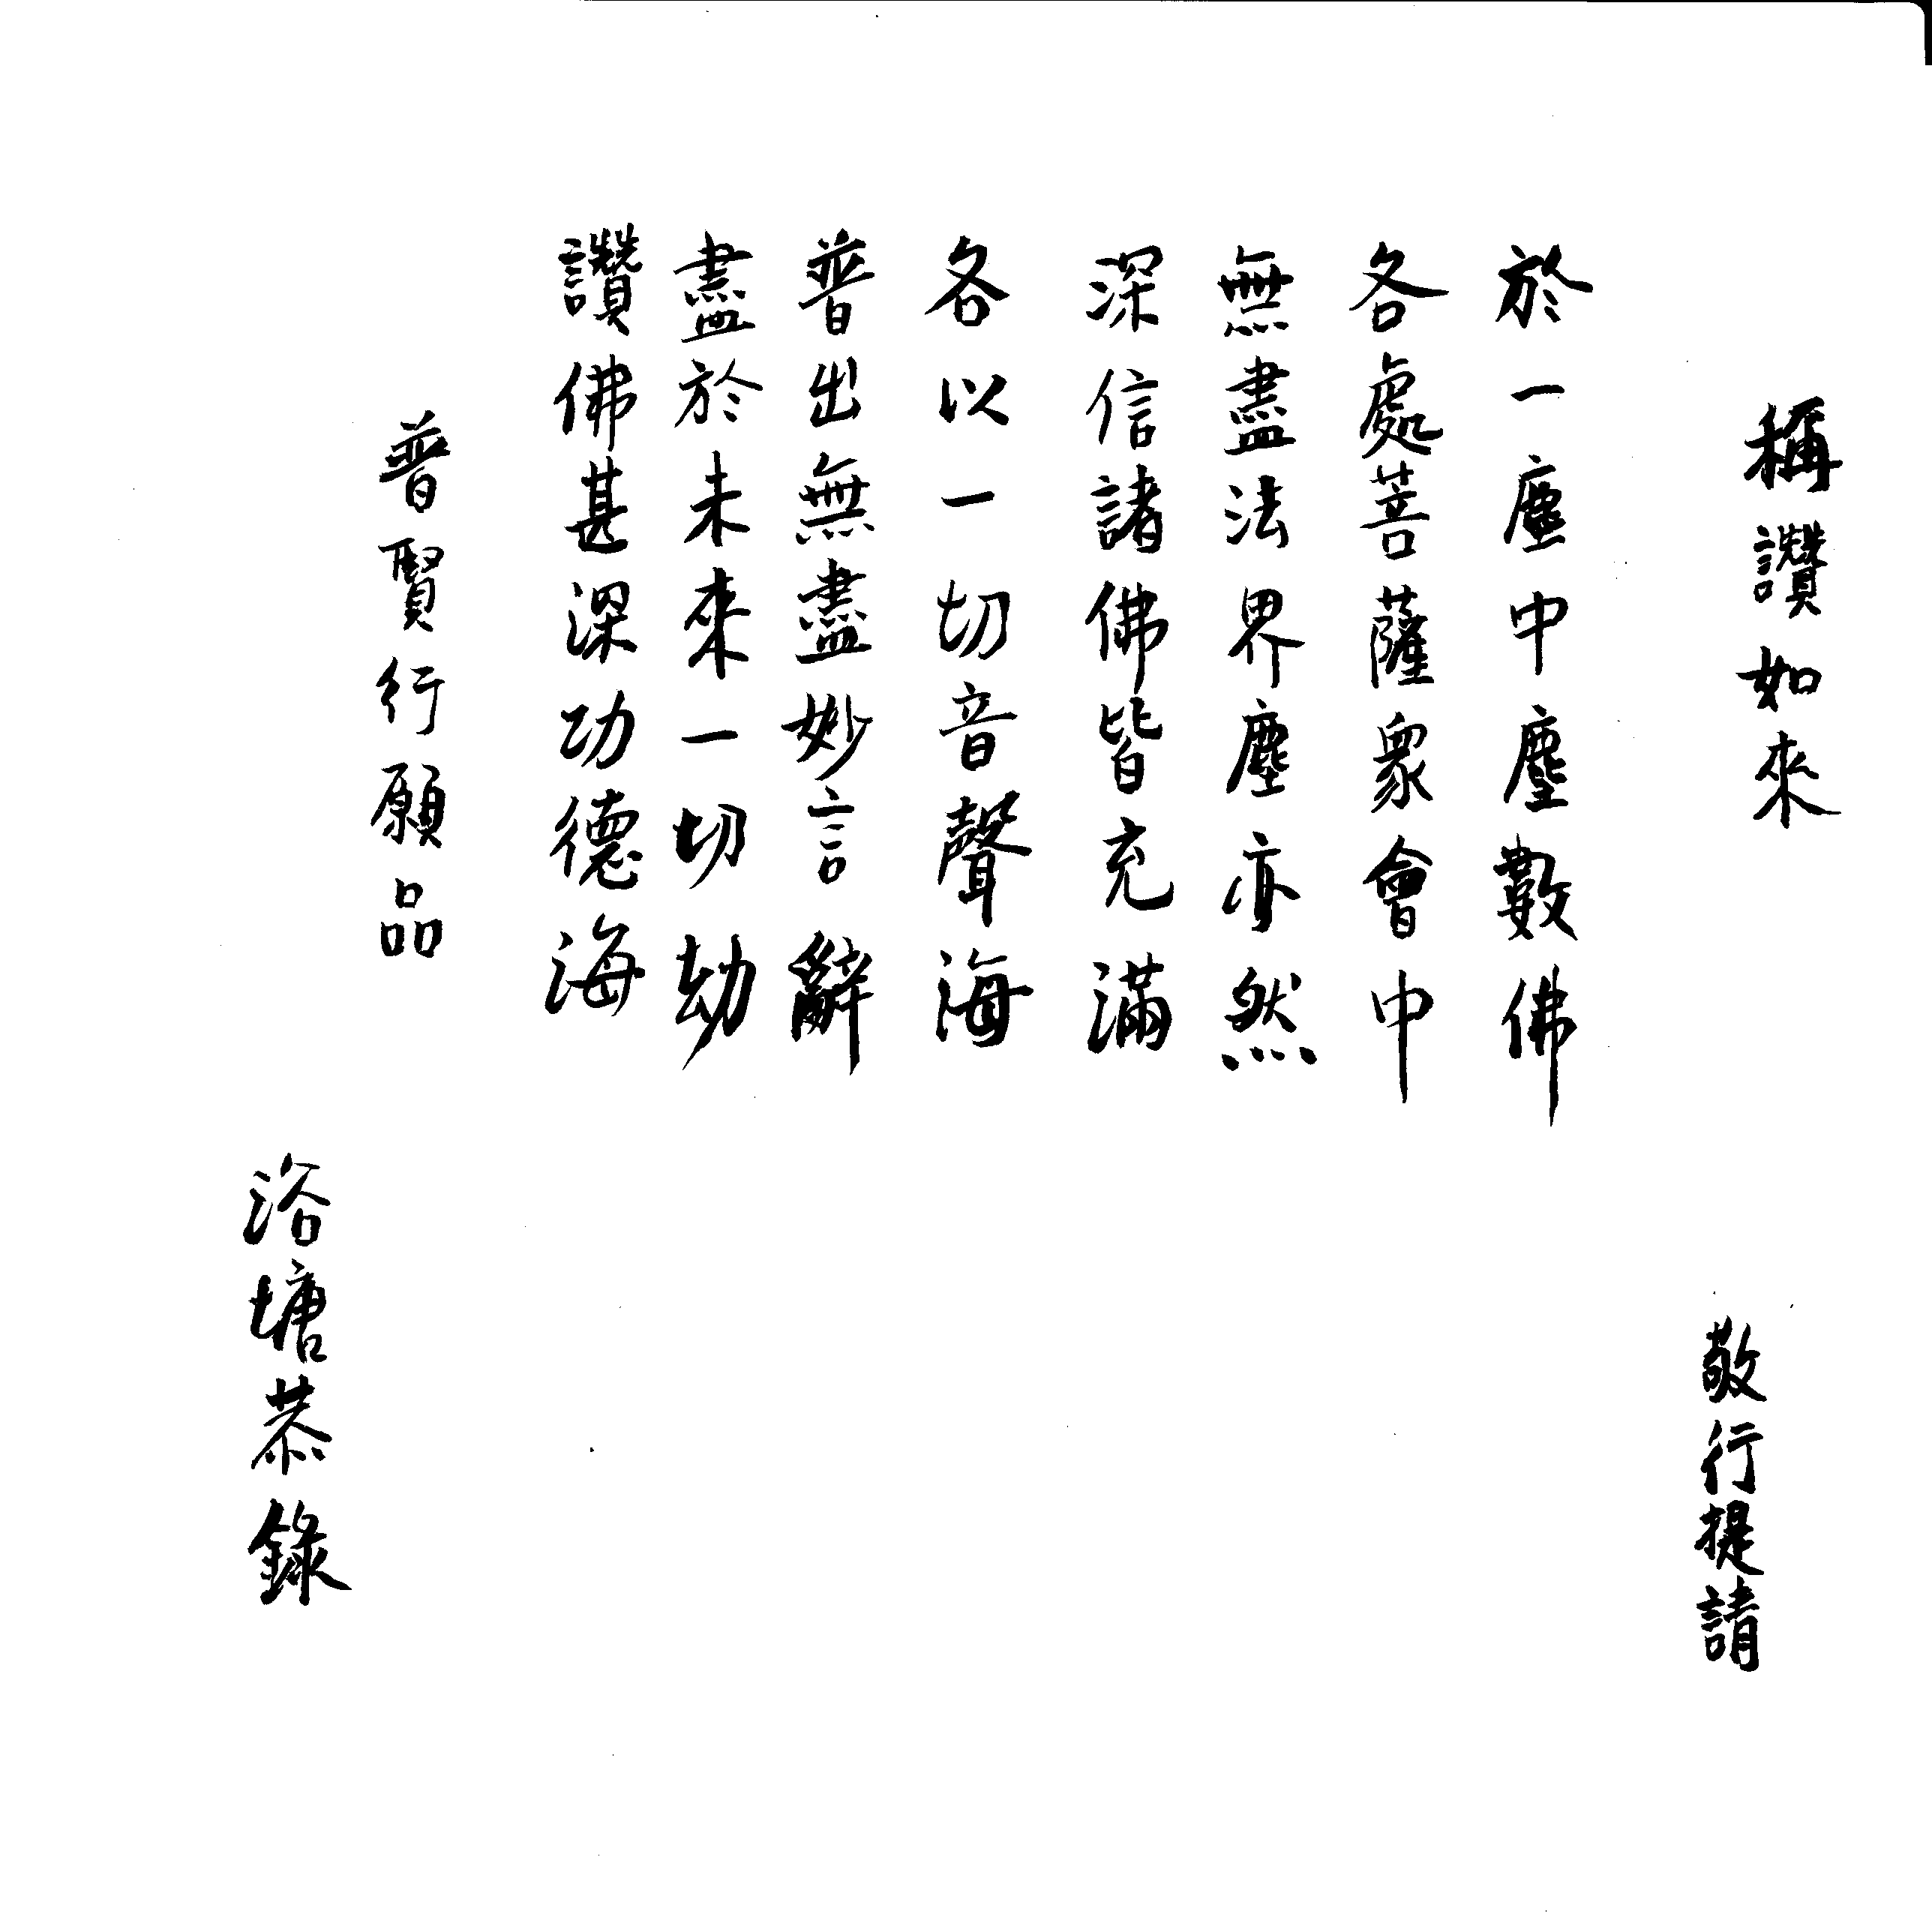 稱讚如來
敬行提請
於一塵中塵數佛
各處菩薩眾會中
無盡法界塵亦然
深信諸佛皆充滿
各以一切音聲海
普出無盡妙言辭
盡於未來一切劫
讚佛甚深功德海
普賢行願品
浴塘恭錄